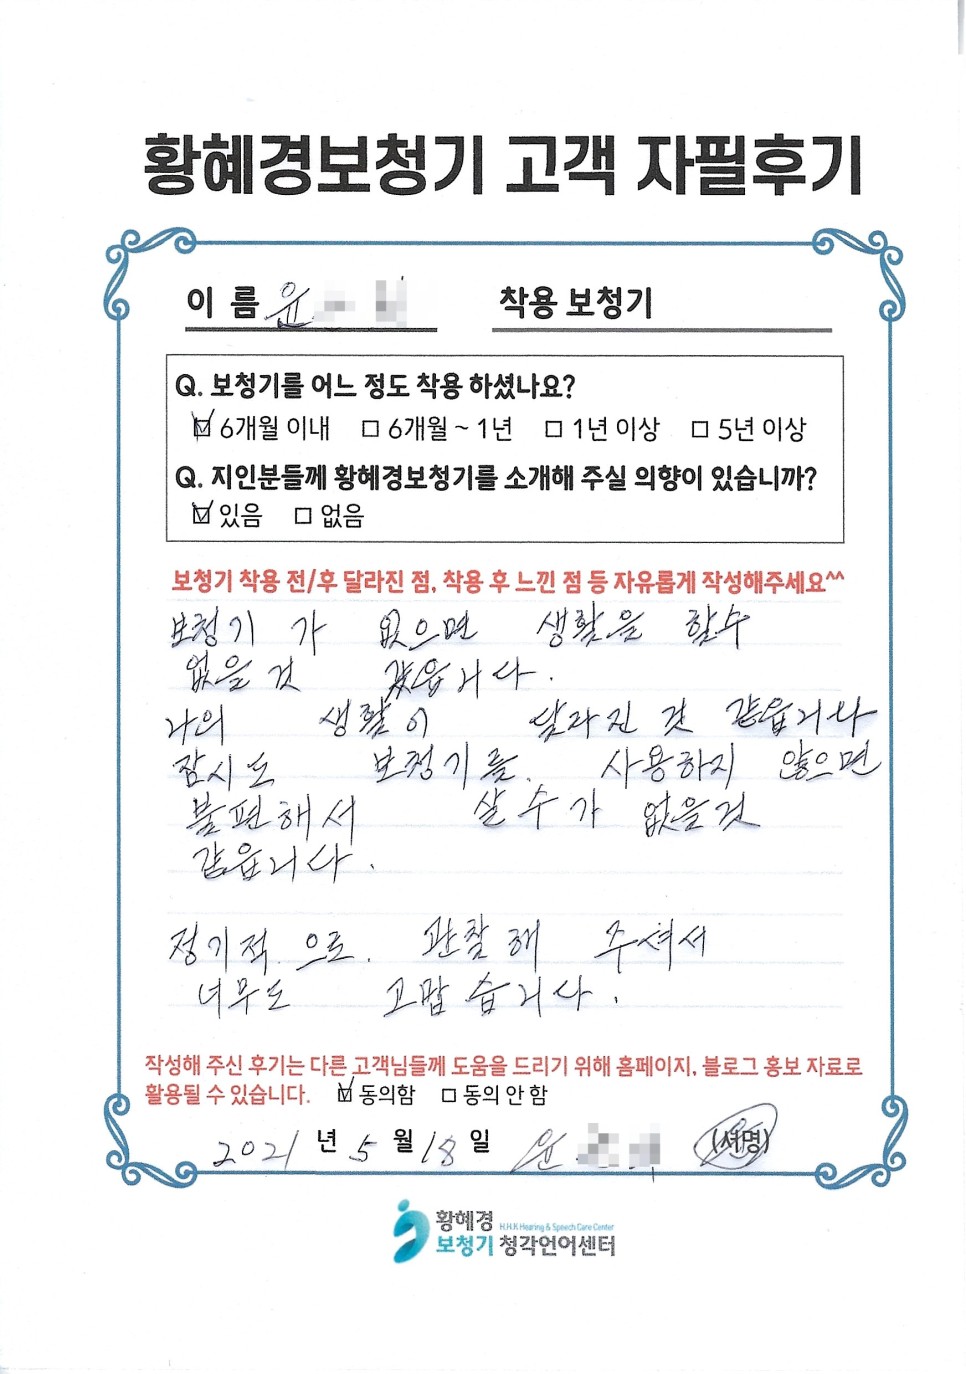 황혜경보청기 고객 자필후기
이 름 윤 착용 보청기
Q. 보청기를 어느 정도 착용 하셨나요?
☑ 6개월 이내 □ 6개월 ~ 1년 □ 1년 이상 □ 5년 이상
Q. 지인분들께 황혜경보청기를 소개해 주실 의향이 있습니까?
☑ 있음 □ 없음
보청기 착용 전/후 달라진 점, 착용 후 느낀 점 등 자유롭게 작성해주세요^^
보청기 가 없으면 생활을 할수
없을 것 갔읍니다.
나의 생활이 달라진 것 같읍니다
잠시도 보청기를. 사용하지 않으면
불편해서 살 수 가 없을것
같읍니다.
정기적 으로. 관찰해 주셔서
너무도 고맙습니다.
작성해 주신 후기는 다른 고객님들께 도움을 드리기 위해 홈페이지, 블로그 홍보 자료로
활용될 수 있습니다. ☑ 동의함 □ 동의 안 함
2021 년 5 월 18 일 윤 (서명)
황혜경 H.H.K Hearing & Speech Care Center
보청기 청각언어센터